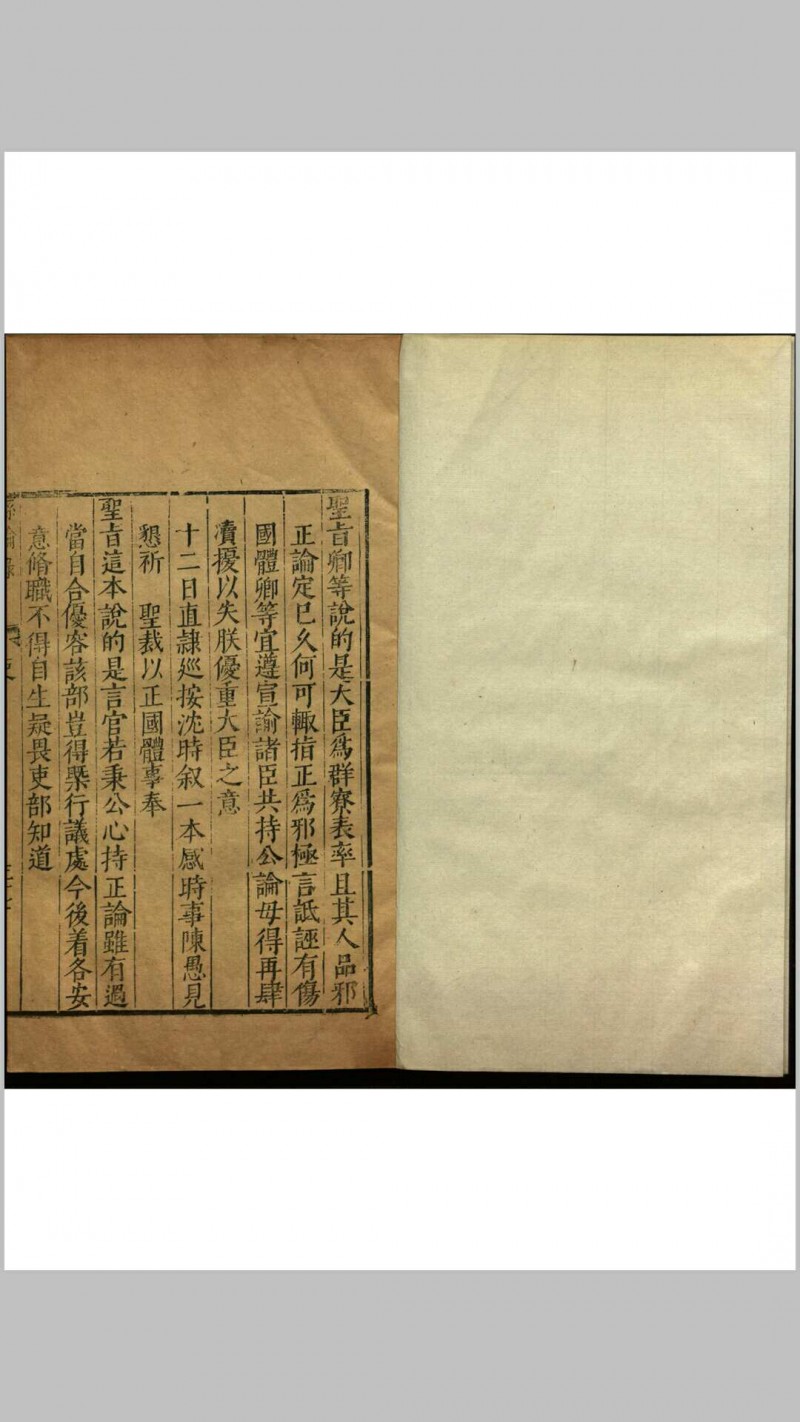 聖旨卿等說的是大臣爲群寮表率且其人品邪
正論定已久何可輙指正爲邪極言詆誣有傷
國體卿等宜遵宣諭諸臣共持公論毋得再肆
瀆擾以失朕優重大臣之意
十二日直隷廵按沈時叙一本感時事陳愚見
懇祈　聖裁以正國體事奉
聖旨這本說的是言官若秉公心持正論雖有過
當自合優容該部豈得槩行議處今後着各安
意脩職不得自生疑畏吏部知道